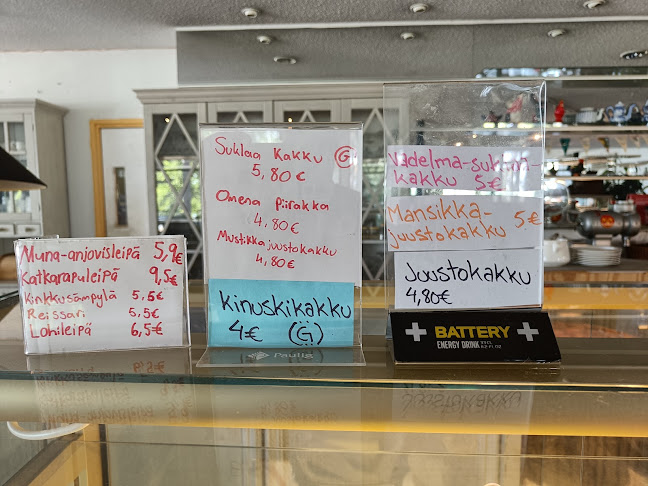 Muna-anjovisleipä 5,9€
Katkarapuleipä 9,5€
Kinkkusämpylä 5,5€
Reissari 5,5€
Lohileipä 6,5€
Suklaa kakku G
5,80 €
Omena piirakka
4,80€
Mustikkajuustokakku
4,80€
Kinuskikakku
4€ (G)
Paulig
Vadelma-
kakku 5€
Mansikka-
juustokakku 5€
Juustokakku
4,80€
BATTERY
ENERGY DRINK